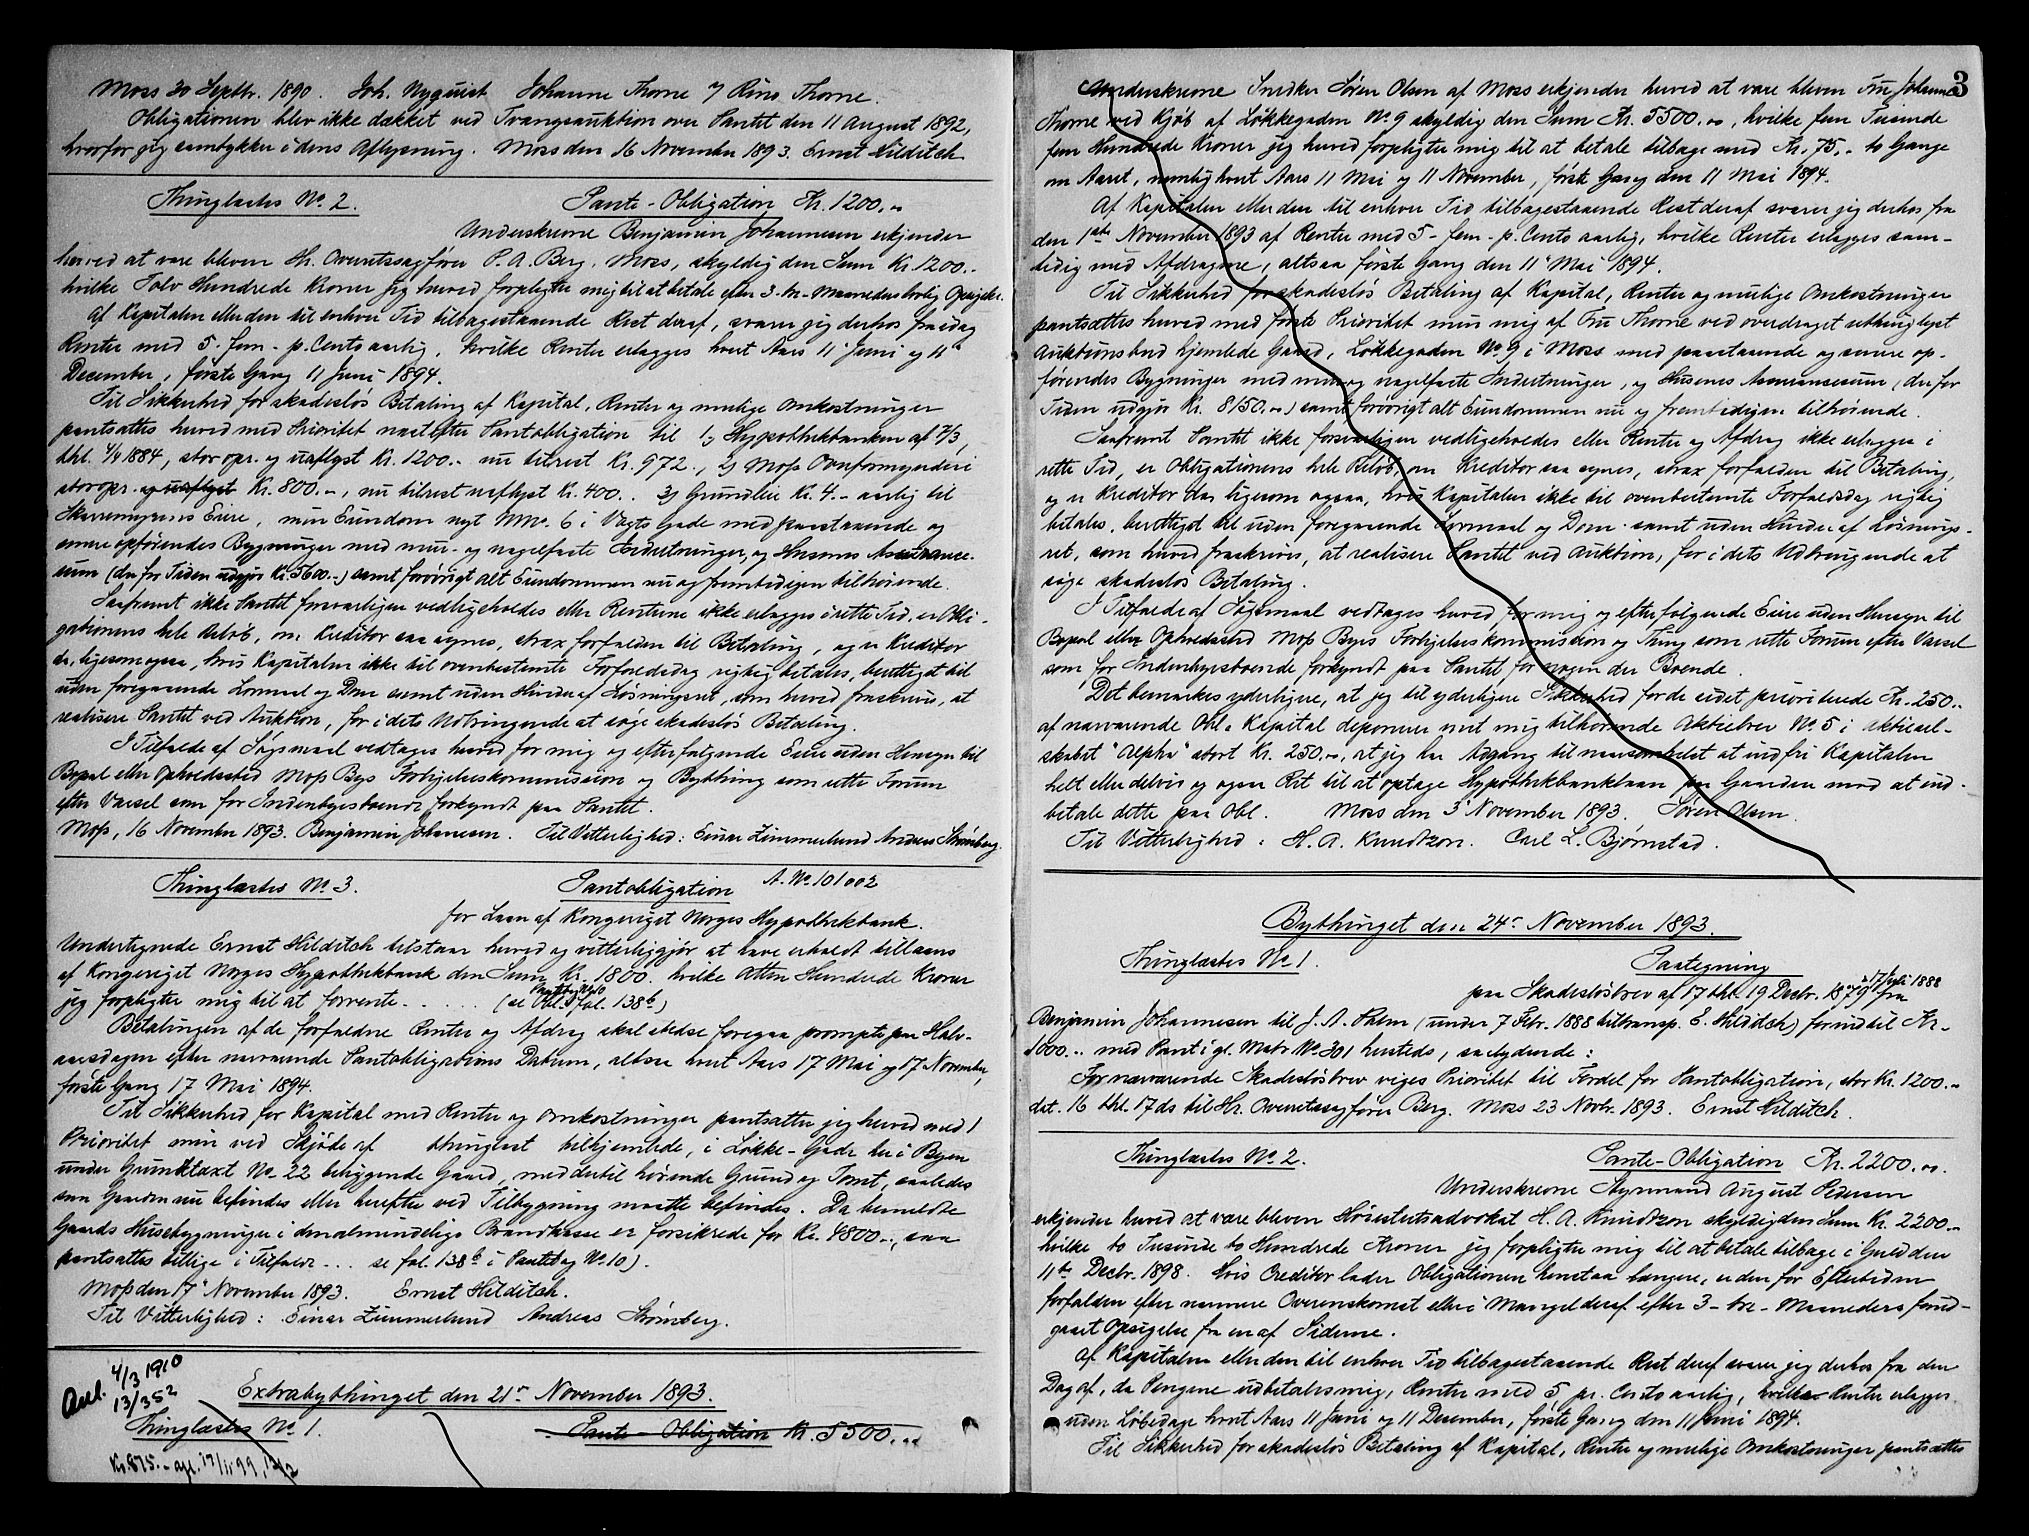 Moss 30 Septbr. 1890. Joh. Nyquist Johanne Thorne & Rino Thorne.
Obligationen blev ikke dækket ved Tvangsauktion over Pantet den 11 August 1892,
hvorfor jeg samtykker i dens Aflysning. Moss den 16 November 1893. Ernst Hilditch
Thinglæstes No. 2. Pante-Obligation Kr. 1200.
Underskrevne Benjamin Johannesen erkjender
herved at være bleven Hr. Overretssagfører P. A. Berg, Moss, skyldig den Sum Kr. 1200.-
hvilke Tolv Hundrede Kroner jeg herved forpligter mig til at betale efter 3-tre-Maaneders lovlig Opsigelse.
Af Kapitalen eller den til enhver Tid tilbagestaaende Rest deraf, svarer jeg derhos fra idag
Renter med 5-fem-p. Cento aarlig, hvilke Renter erlægges hvert Aars 11 Juni og 11
December, første Gang 11 Juni 1894.
Til Sikkerhed for skadesløs Betaling af Kapital, Renter og mulige Omkostninger
pantsættes herved med Prioritet næst efter Pantobligation til 1, Hypothekbanken af 7/3,
thl. 4/4 1884, stor opr. og uaflyst Kr. 1200.- nu tilrest Kr. 972., 2, Moss Overformynderi
stor opr. og uaflyst Kr. 800.-, nu tilrest uaflyst Kr. 400.. 3, Grundleie Kr. 4.- aarlig til
Skarremyrens Eier, min Eiendom nyt No. 6 i Vogts Gade med paastaaende og
senere opførendes Bygninger med mur- og nagelfaste Indretninger, og Husenes Assurance-
sum (der for Tiden udgjør Kr. 5600.-) samt forøvrigt alt Eiendommen nu og fremtidigen tilhørende.
Saafremt ikke Pantet forsvarligen vedligeholdes eller Renterne ikke erlægges i rette Tid, er Obli-
gationens hele Beløb, om Kreditor saa synes, strax forfalden til Betaling, og er Kreditor
da, ligesom ogsaa, hvis Kapitalen ikke til ovenbestemte Forfaldsdag rigtig betales, berettiget til
uden foregaaende Lovmaal og Dom samt uden Hinder af Løsningsret, som herved fraskrives, at
realisere Pantet ved Auktion, for i dets Udbringende at søge skadesløs Betaling.
I Tilfælde af Søgsmaal vedtages herved for mig og efterfølgende Eiere uden Hensyn til
Bopæl eller Opholdssted Moss Byes Forligelseskommission og Bything som rette Forum
efter Varsel som for Indenbyesboende forkyndt paa Pantet.
Moss, 16 November 1893. Benjamin Johannesen. Til Vitterlighed: Einar Zimmerlund Andreas Strømberg.
Thinglæstes No. 3. Pantobligation A. No. 101002
for Laan af Kongeriget Norges Hypothekbank.
Undertegnede Ernst Hilditch tilstaar herved og vitterliggjør at have erholdt tillaans
af Kongeriget Norges Hypothekbank den Sum Kr. 1800. hvilke Atten Hundrede Kroner
jeg forpligter mig til at forrente...... (se Obl. i Pantebog No 10 fol. 138b)
Betalingen af de forfaldne Renter og Afdrag skal stedse foregaa prompte paa Halv-
aarsdagen efter nærværende Pantobligations Datum, altsaa hvert Aars 17 Mai og 17 November,
første Gang 17 Mai 1894.
Til Sikkerhed for Kapital med Renter og Omkostninger pantsætter jeg herved med 1
Prioritet min ved Skjøde af thinglæst tilhjemlede, i Løkke-Gade her i Byen
under Grundtaxt No. 22 beliggende Gaard, med dertil hørende Grund og Tomt, saaledes
som Gaarden nu befindes eller herefter ved Tilbygning maatte befindes. Da bemeldte
Gaards Husebygninger i den almindelige Brandkasse er forsikrede for Kr. 4800.-, saa
pantsættes tillige i Tilfælde... se fol. 138b i Pantebog No. 10).
Moss den 17 November 1893. Ernst Hilditch.
Til Vitterlighed: Einar Zimmerlund Andreas Strømberg.
Extrabythinget den 21. November 1893.
Aul. 4/3 1910
13/352
Thinglæstes No. 1. Pante-Obligation Kr. 5500.
Kr. 875.- 17/11 99
3
Underskrevne Snedker Søren Olsen af Moss erkjender herved at være bleven Fru Johanne
Thorne ved Kjøb af Løkkegaden No. 9 skyldig den Sum Kr. 5500.-, hvilke fem Tusinde
fem Hundrede Kroner jeg herved forpligter mig til at betale tilbage med Kr. 75.- to Gange
om Aaret, nemlig hvert Aars 11 Mai og 11 November, første Gang den 11 Mai 1894.
Af Kapitalen eller den til enhver Tid tilbagestaaende Rest deraf svarer jeg derhos fra
den 1ste November 1893 af Renter med 5-fem-p. Cento aarlig, hvilke Renter erlægges sam-
tidig med Afdragene, altsaa første Gang den 11 Mai 1894.
Til Sikkerhed for skadesløs Betaling af Kapital, Renter og mulige Omkostninger
pantsættes herved med første Prioritet min mig af Fru Thorne ved overdraget utthinglyst
Auktionsbud hjemlede Gaard, Løkkegaden No. 9 i Moss med paastaaende og senere op-
førendes Bygninger med mur og nagelfaste Indretninger, og Husenes Assurancesum (der for
Tiden udgjør Kr. 8150.-) samt forøvrigt alt Eiendommen nu og fremtidigen tilhørende.
Saafremt Pantet ikke forsvarligen vedligeholdes eller Renter og Afdrag ikke erlægges i
rette Tid, er Obligationens hele Beløb, om Kreditor saa synes, strax forfalden til Betaling,
og er Kreditor da, ligesom ogsaa, hvis Kapitalen ikke til ovenbestemte Forfaldsdag rigtig
betales, berettiget til uden foregaaende Lovmaal og Dom samt uden Hinder af Løsnings-
ret, som herved fraskrives, at realisere Pantet ved Auktion, for i dets Udbringende at
søge skadesløs Betaling.
I Tilfælde af Søgsmaal vedtages herved for mig og efterfølgende Eiere uden Hensyn til
Bopæl eller Opholdssted Moss Byes Forligelseskommission og Thing som rette Forum efter Varsel
som for Indenbyesboende forkyndt paa Pantet for nogen der Boende.
Det bemærkes yderligere, at jeg til yderligere Sikkerhed for de sidst prioriterede Kr. 250..
af nærværende Obl. Kapital deponerer mit mig tilhørende Aktiebrev No. 5 i Aktiesel-
skabet "Alpha" stort Kr. 250.-, at jeg har Adgang til naarsomhelst at indfri Kapitalen
helt eller delvis og ogsaa Ret til at optage Hypothekbanklaan paa Gaarden mod at ind-
betale dette paa Obl. Moss den 3 November 1893. Søren Olsen.
Til Vitterlighed: H. A. Knudtzon. Carl L. Bjørnstad.
Bythinget den 24. November 1893.
Thinglæstes No. 1. Paategning
paa Skadesløsbrev af 17 thl. 19 Decbr. 1879 og 17 Juli 1888 fra
Benjamin Johannesen til J. A. Palm (under 7 Febr. 1888 transp. E. Hilditch) for indtil Kr.
1000.- med Pant i gl. Matr No. 301 hersteds, saalydende:
For nærværende Skadesløsbrev viges Prioritet til Fordel for Pantobligation, stor Kr. 1200.-
dat. 16 thl. 17 ds til Hr. Overretssagfører Berg. Moss 23 Novbr. 1893. Ernst Hilditch.
Thinglæstes No. 2. Pante-Obligation Kr. 2200.
Underskrevne Styrmand August Pedersen
erkjender herved at være bleven Høiesteretsadvokat H. A. Knudtzon skyldig den Sum Kr. 2200.-
hvilke to Tusinde to Hundrede Kroner jeg forpligter mig til at betale tilbage i Guld den
11te Decbr. 1898. Hvis Creditor lader Obligationen henstaa længere, er den for Eftertiden
forfalden efter nærmere Overenskomst eller i Mangel deraf efter 3-tre-Maaneders forud-
gaaet Opsigelse fra en af Siderne.
Af Kapitalen eller den til enhver Tid tilbagestaaende Rest deraf svarer jeg derhos fra den
Dag af, da Pengene udbetales mig, Renter med 5 pr. Cento aarlig, hvilke Renter erlægges
uden Løbedage hvert Aars 11 Juni og 11 December, første Gang den 11 Juni 1894.
Til Sikkerhed for skadesløs Betaling af Kapital, Renter og mulige Omkostninger pantsættes